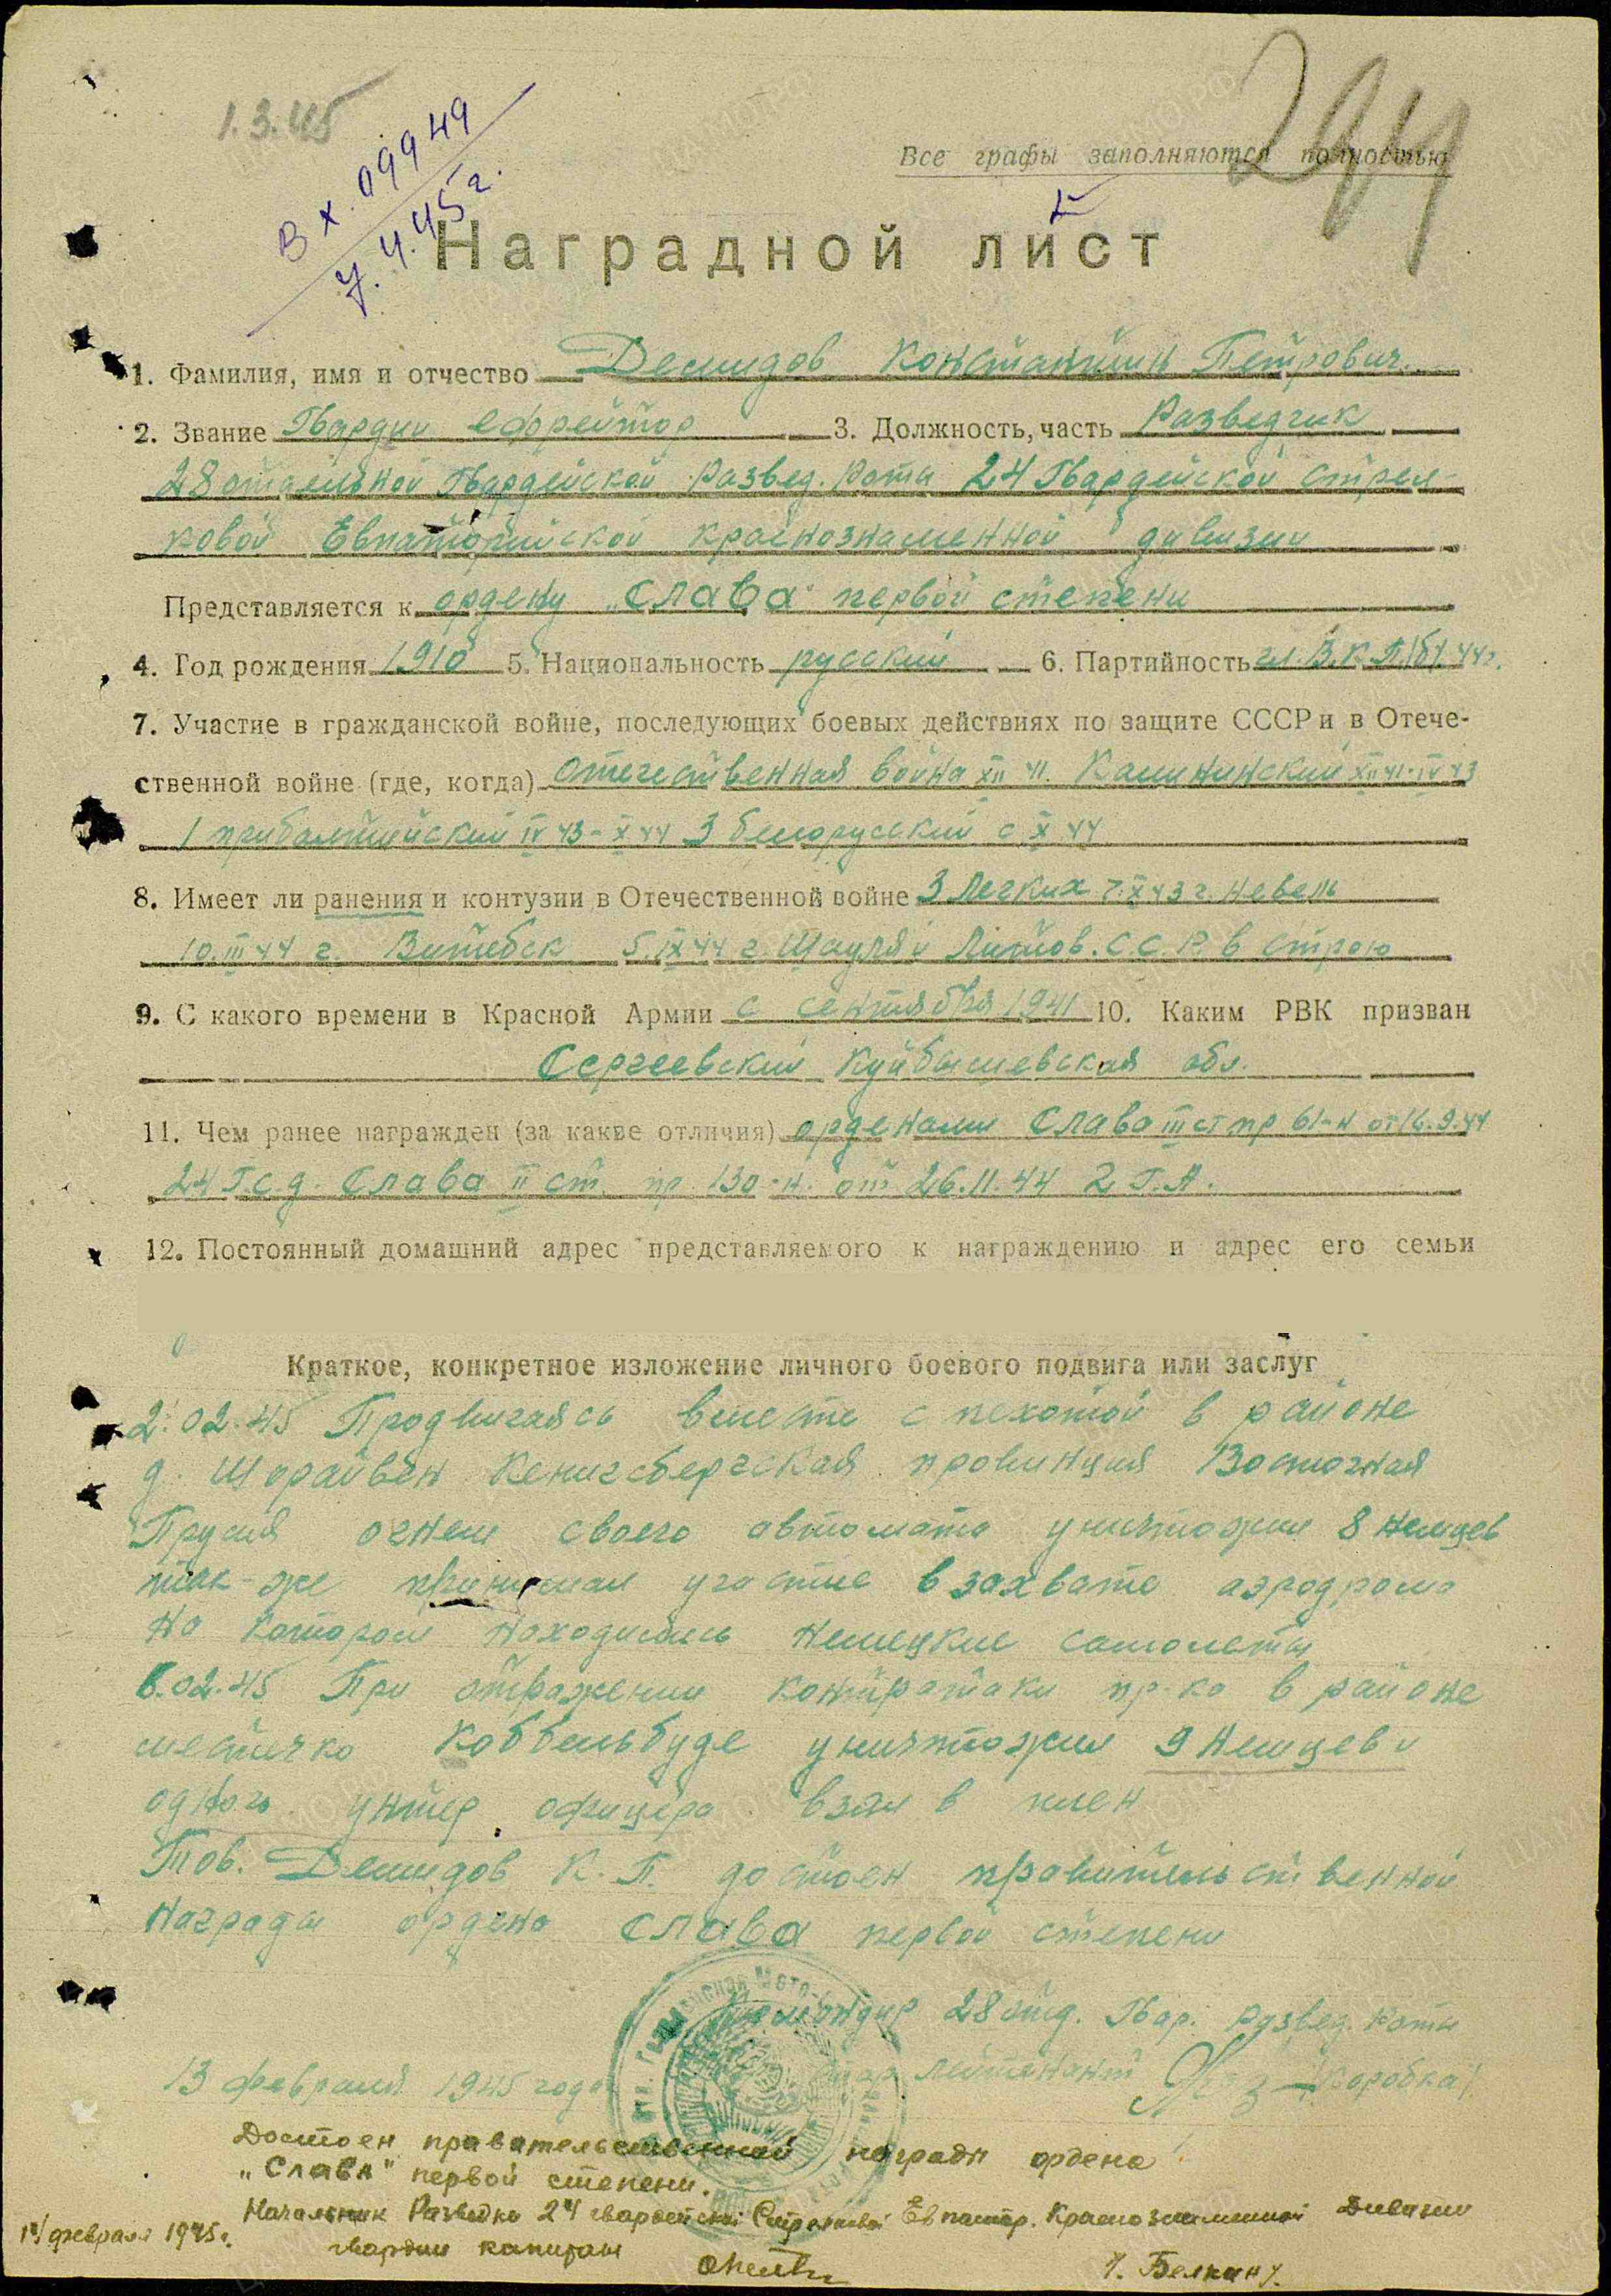 1.3.45
Вх. 09949
7.4.45г.
244
Все графы заполняются полностью
Наградной лист
1. Фамилия, имя и отчество Демидов Константин Петрович
2. Звание Гвардии ефрейтор 3. Должность, часть Разведчик
28 отдельной Гвардейской развед. роты 24 Гвардейской стрел-
ковой Евпаторийской краснознаменной дивизии
Представляется к ордену „Слава" первой степени
4. Год рождения 1910 5. Национальность русский 6. Партийность чл. В.К.П.(б). 44г.
7. Участие в гражданской войне, последующих боевых действиях по защите СССР и в Отече-
ственной войне (где, когда) Отечественная война XII 41. Калининский XII 41-IV 43
1 прибалтийский IV 43-X 44 3 белорусский с X 44
8. Имеет ли ранения и контузии в Отечественной войне 3 легких 7.X 43 г. Невель
10.III 44 г. Витебск 5.IX 44 г. Шауляй Литов. С.С.Р. в строю
9. С какого времени в Красной Армии с сентября 1941 10. Каким РВК призван
Сергеевский Куйбышевская обл.
11. Чем ранее награжден (за какие отличия) орденами Слава III ст пр 61-н от 16.9.44
24 Г.С.д. Слава II ст. пр. 130-н. от 26.11.44 2 Г.А.
12. Постоянный домашний адрес представляемого к награждению и адрес его семьи
Краткое, конкретное изложение личного боевого подвига или заслуг
2.02.45 Продвигаясь вместе с пехотой в районе
д. Шорайвен Кенигсбергская провинция Восточная
Пруссия огнем своего автомата уничтожил 8 немцев
так-же принимал участие в захвате аэродрома
на котором находились немецкие самолеты
6.02.45 При отражении контратаки пр-ка в районе
местечко Коббельбуде уничтожил 9 немцев и
одного унтер офицера взял в плен
Тов. Демидов К.П. достоен правительственной
награды ордена Слава первой степени
Командир 28 отд. Гвар. развед. роты
стар. лейтенант /Коробка/
13 февраля 1945 года
Достоен правительственной награды ордена
„Слава" первой степени.
Начальник Разведки 24 гвардейской Стрелковой Евпатор. Краснознаменной Дивизии
14 февраля 1945г. гвардии капитан
/. Белкин/.